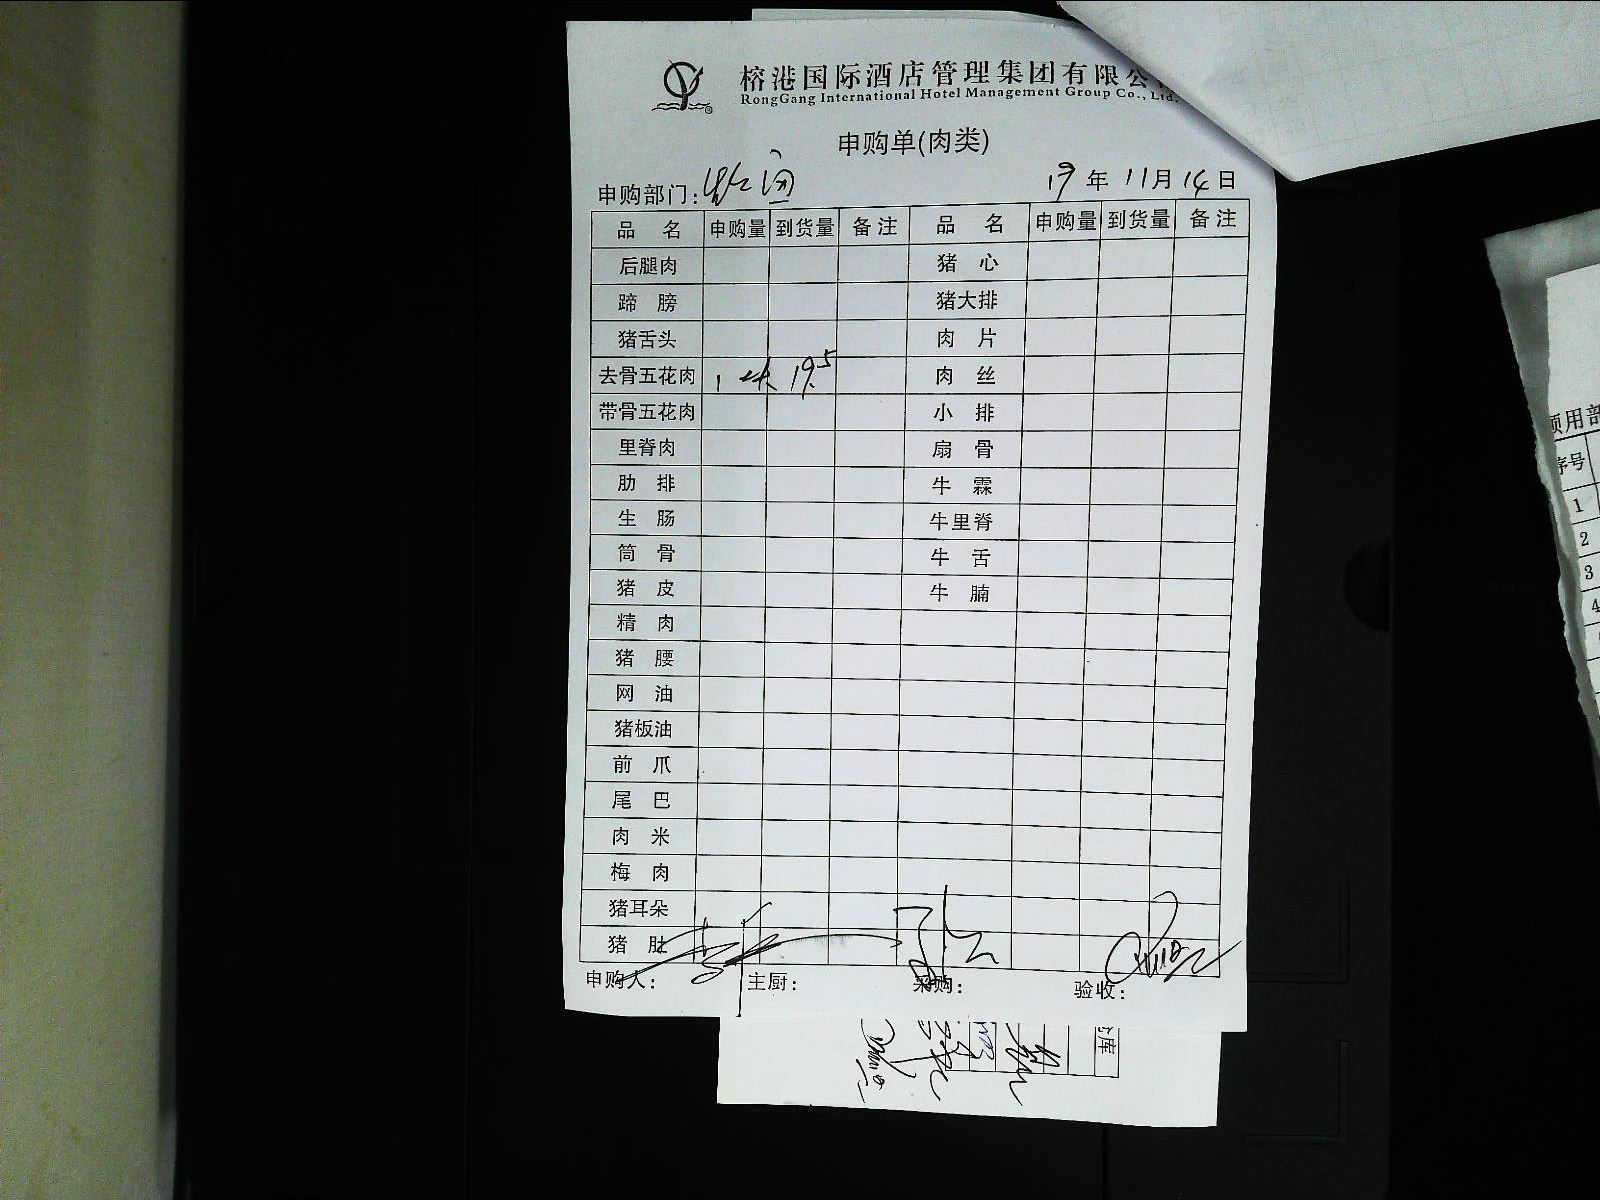 榕港国际酒店管理集团有限公
RongGang International Hotel Management Group Co., Ltd.
申购单(肉类)
申购部门:
19年11月14日
品名 申购量 到货量 备注 品名 申购量 到货量 备注
后腿肉 猪心
蹄膀 猪大排
猪舌头 肉片
去骨五花肉 1块 19.5 肉丝
带骨五花肉 小排
里脊肉 扇骨
肋排 牛霖
生肠 牛里脊
筒骨 牛舌
猪皮 牛腩
精肉
猪腰
网油
猪板油
前爪
尾巴
肉米
梅肉
猪耳朵
猪肚
申购人: 主厨: 采购: 验收:
库
领用部
序号
1
2
3
4